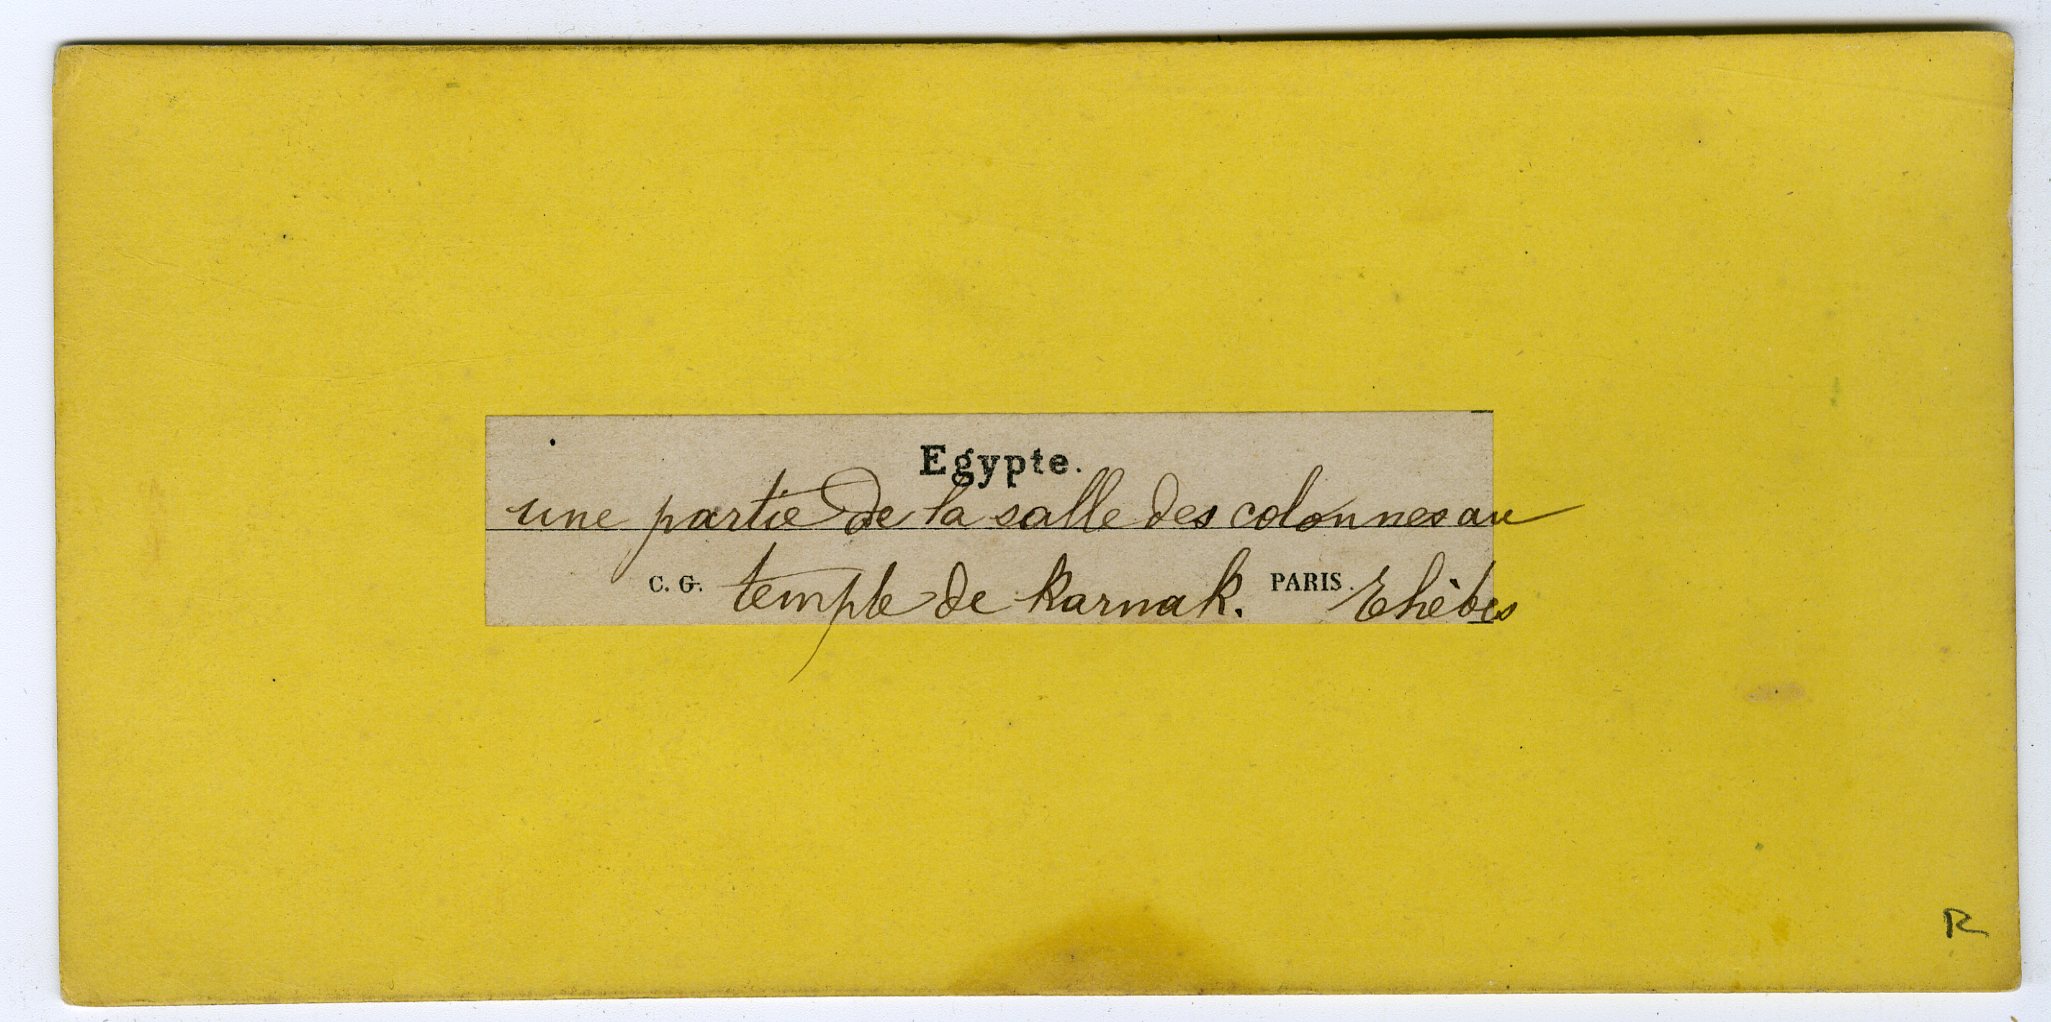 Egypte.
une partie de la salle des colonnes au
C. G. temple de Karnak. PARIS. Thèbes
R